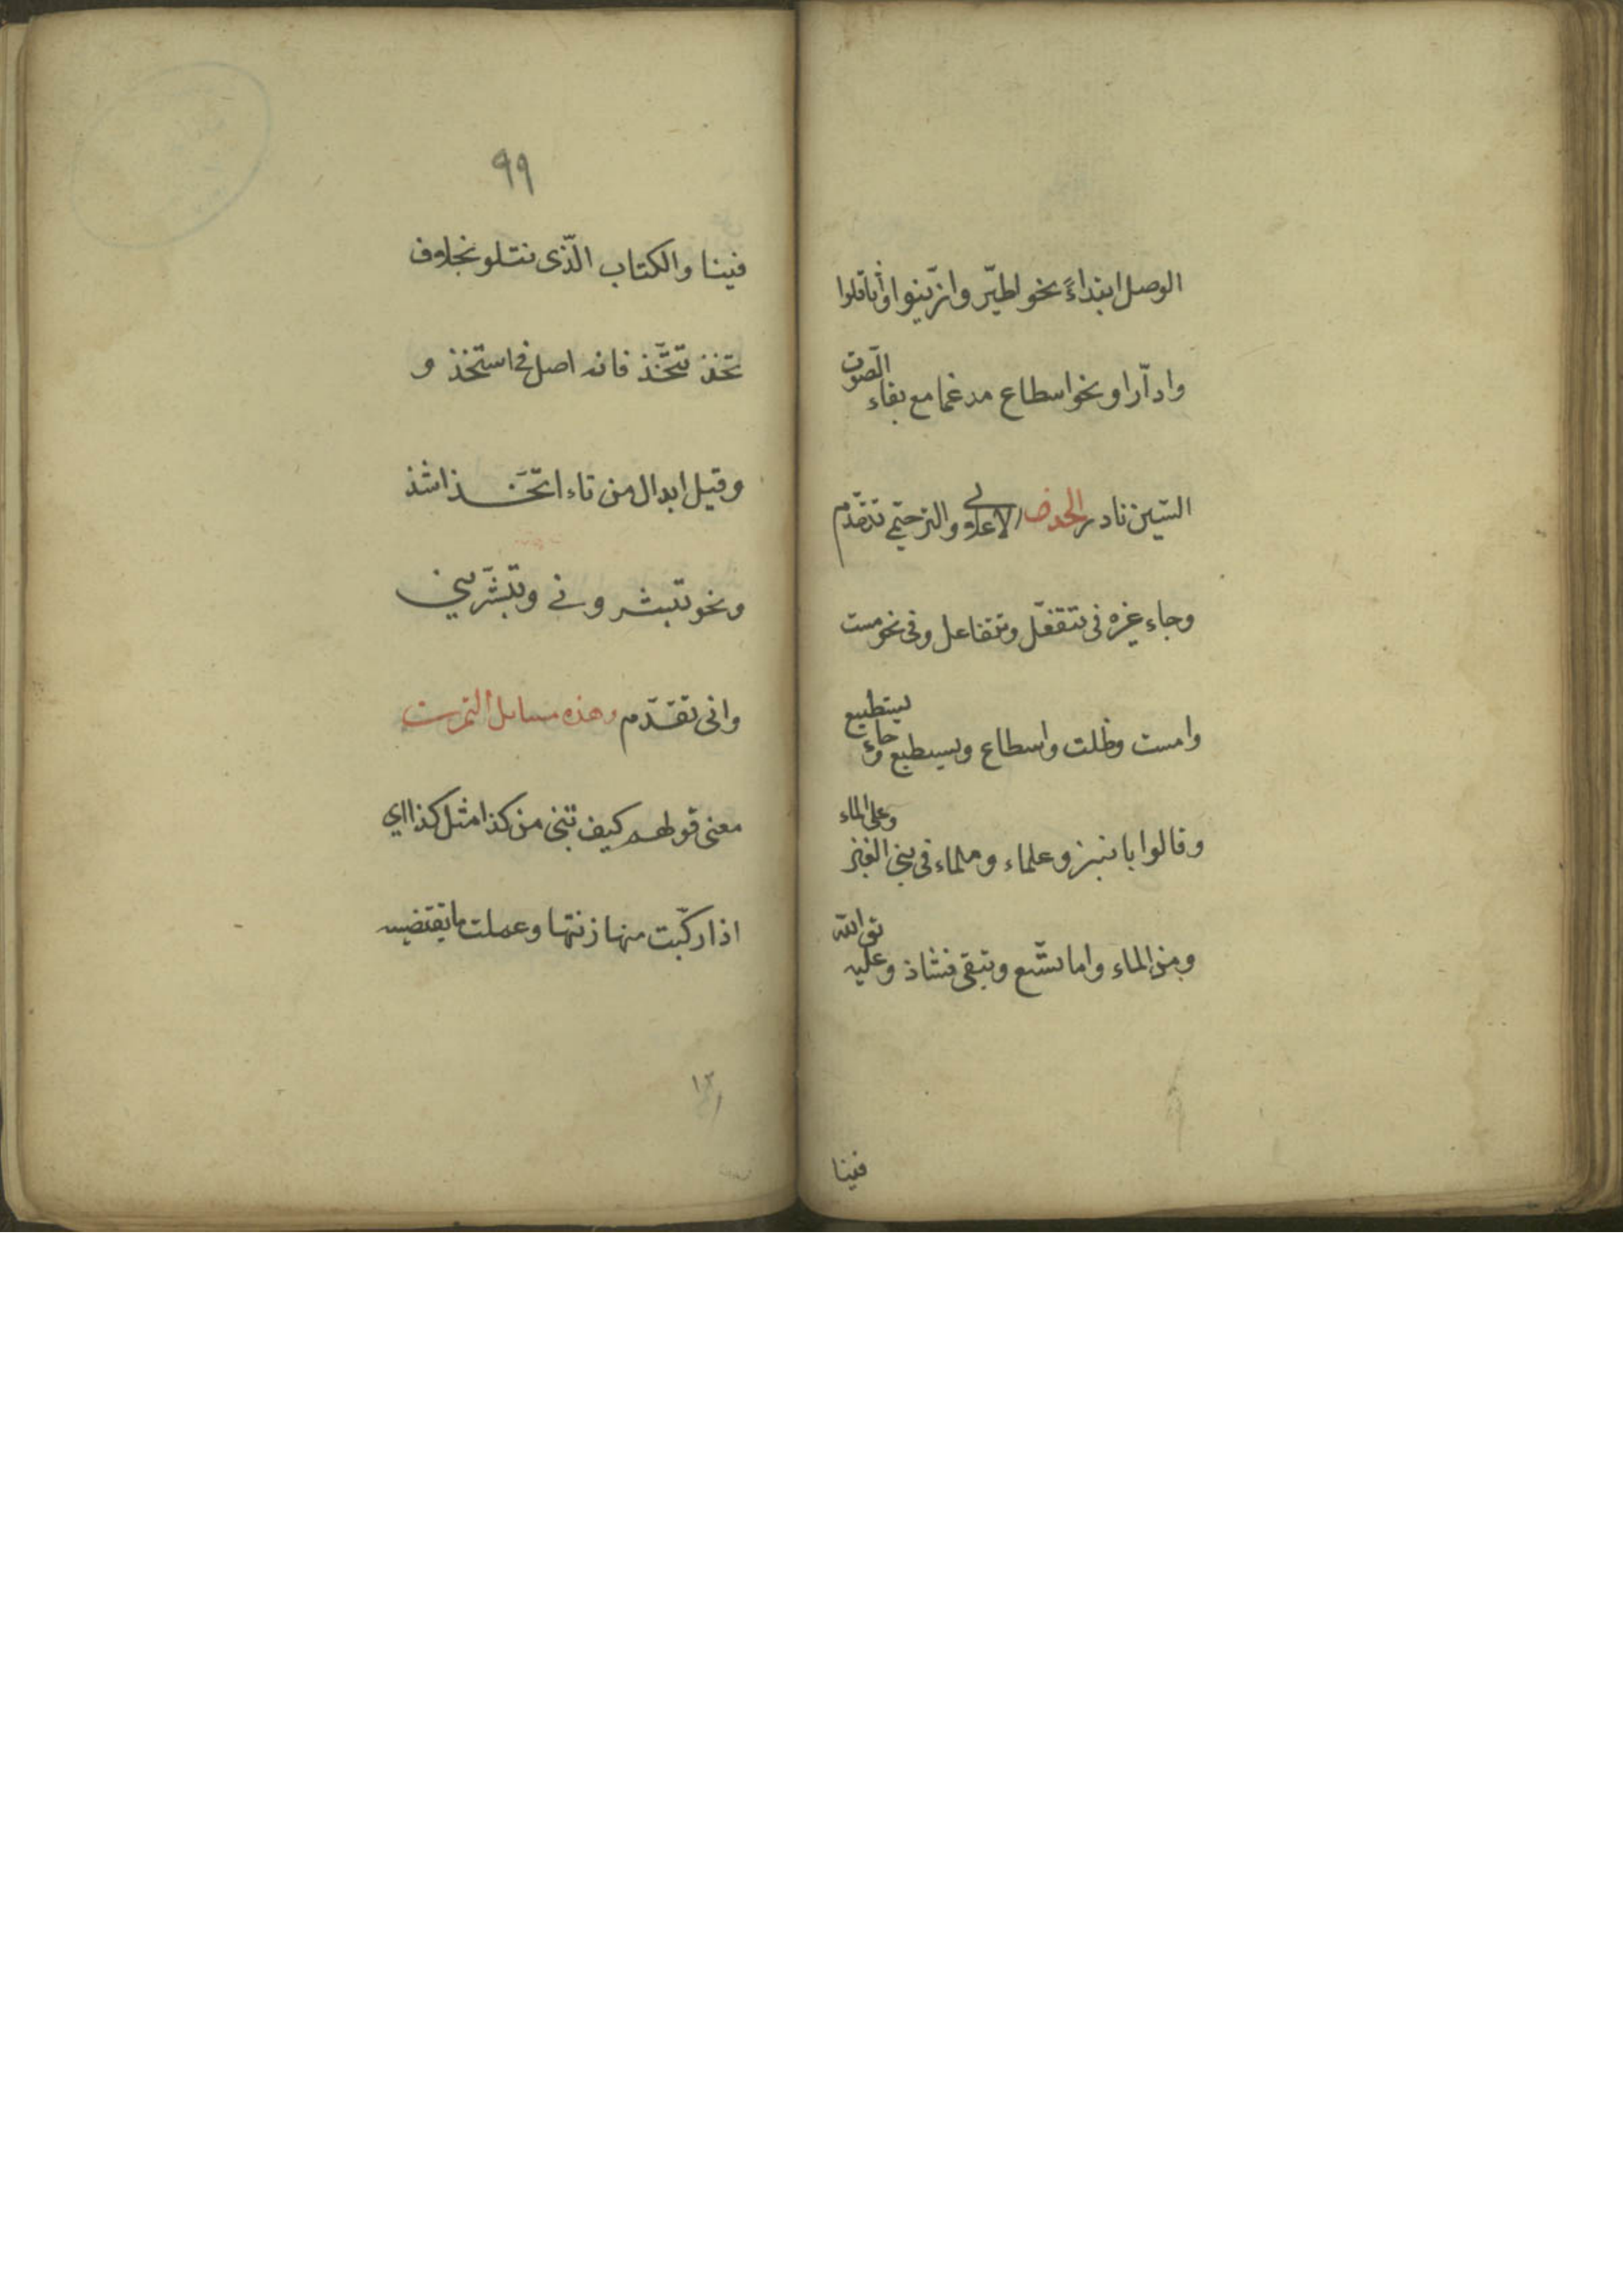 الوصل ابتداءً نحو اطيّر وازّينوا واثاقلوا
وادّارا ونحو اسطاع مدغما مع بقاء الصوت
السّين نادر الحذف الاعلالى والترخيمى تقدّم
وجاء غيره فى تتفعّل وتتفاعل وفى نحو مست
وامست وظلت واسطاع ويسطيع وجاء يستطيع
وقالوا بلعنبر وعلماء وملماء فى بنى العنبر وعلى الماء
ومن الماء واما يتّسع ويتقى فشاذ وعليه تق الله
فينا
٩٩
فينا والكتاب الّذى نتلو بخلاف
تخذ يتّخذ فانه اصل فى استخذ و
وقيل ابدال من تاء اتّخذ اشذ
ونحو تبشرونى وتبشّرينى
وانى تقدّم وهذه مسايل التمرين
معنى قولهم كيف تبنى من كذا مثل كذا اي
اذا ركّبت منها زنتها وعملت ما يقتضيه